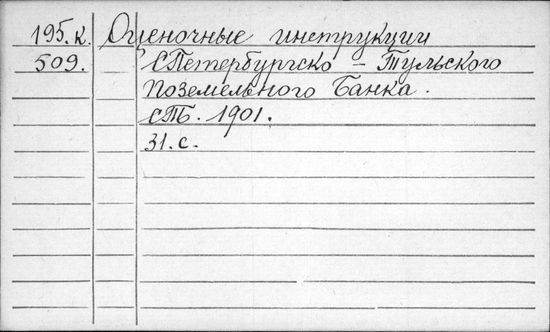 195.к. Оценочные инструкции
509. СПетербургско-Тульского
поземельного Банка.
СПБ. 1901.
31.с.